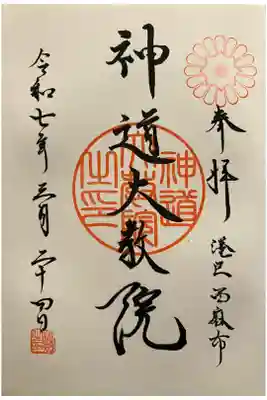 奉拝
港区西麻布
神道大教院
神道大教院之印
令和七年三月二十四日